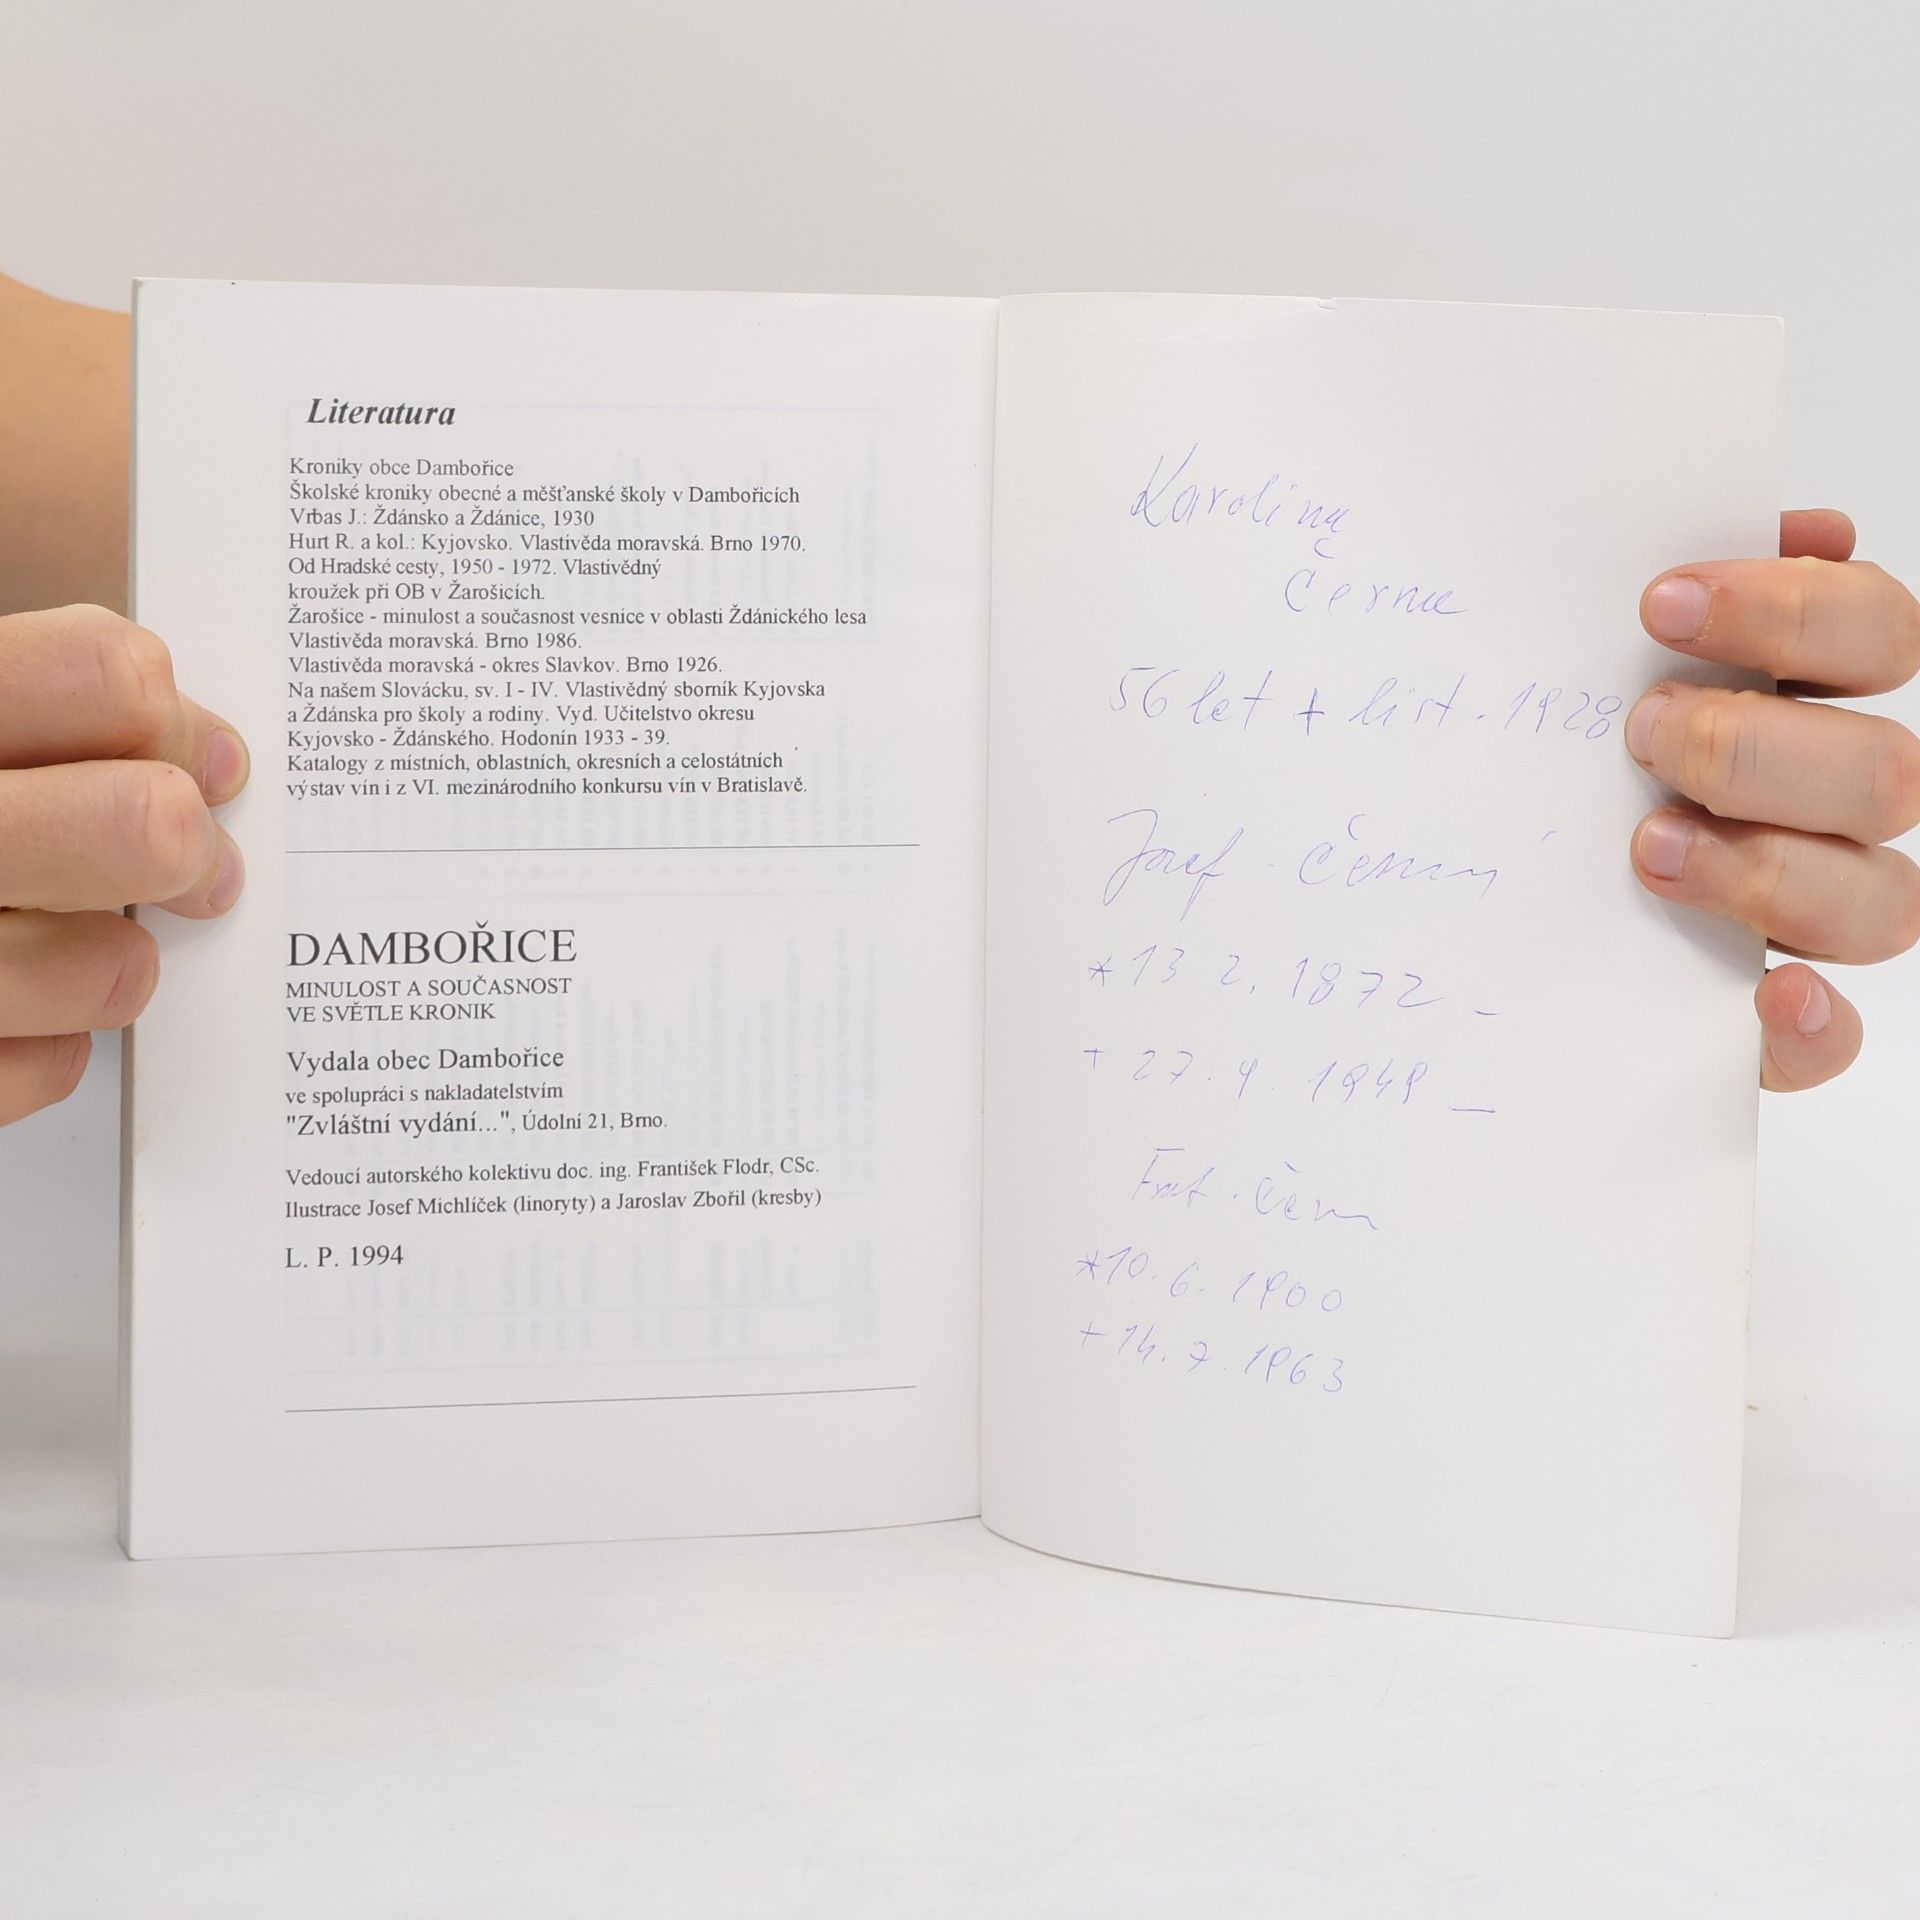 Literatura
Kroniky obce Dambořice
Školské kroniky obecné a měšťanské školy v Dambořicích
Vrbas J.: Ždánsko a Ždánice, 1930
Hurt R. a kol.: Kyjovsko. Vlastivěda moravská. Brno 1970.
Od Hradské cesty, 1950 - 1972. Vlastivědný
kroužek při OB v Žarošicích.
Žarošice - minulost a současnost vesnice v oblasti Ždánického lesa
Vlastivěda moravská. Brno 1986.
Vlastivěda moravská - okres Slavkov. Brno 1926.
Na našem Slovácku, sv. I - IV. Vlastivědný sborník Kyjovska
a Ždánska pro školy a rodiny. Vyd. Učitelstvo okresu
Kyjovsko - Ždánského. Hodonín 1933 - 39.
Katalogy z místních, oblastních, okresních a celostátních
výstav vín i z VI. mezinárodního konkursu vín v Bratislavě.
DAMBOŘICE
MINULOST A SOUČASNOST
VE SVĚTLE KRONIK
Vydala obec Dambořice
ve spolupráci s nakladatelstvím
"Zvláštní vydání...", Údolní 21, Brno.
Vedoucí autorského kolektivu doc. ing. František Flodr, CSc.
Ilustrace Josef Michlíček (linoryty) a Jaroslav Zbořil (kresby)
L. P. 1994
Karolina
Černá
56 let + list. 1928
Josef Černý
* 13 2. 1872 -
+ 27. 9. 1949 -
* 10. 6. 1900
+ 14. 7. 1963